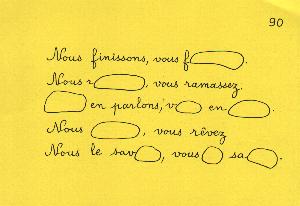 90
Nous finissons, vous f
Nous r , vous ramassez.
en parlons, v en .
Nous , vous rêvez
Nous le sav , vous sa .